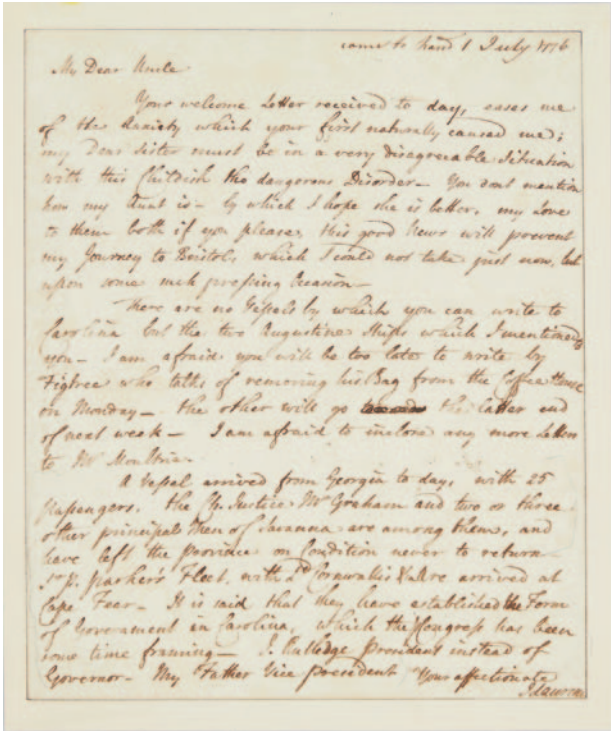 came to hand 1 July 1776
My Dear Uncle
Your welcome Letter received to day, eases me
of the Anxiety which your first naturally caused me;
my Dear Sister must be in a very disagreeable Situation
with this Childish tho dangerous Disorder— You dont mention
how my Aunt is— by which I hope she is better. my Love
to them both if you please, this good News will prevent
my Journey to Bristol, which I could not take just now, but
upon some such pressing Occasion—
There are no Vessels by which you can write to
Carolina but the two Augustine Ships which I mentioned to
you— I am afraid you will be too late to write by
Figtree who talks of removing his Bag from the Coffee House
on Monday— the other will go the latter end
of next week— I am afraid to inclose any more Letters
to Mr Moultrie.
A Vessel arrived from Georgia to day, with 25
passengers. the Ch. Justice Mr Graham and two or three
other principal Men of Savanna are among them, and
have left the province on Condition never to return
Sr P. Parker's Fleet, with Ld Cornwallis &c are arrived at
Cape Fear— It is said that they have established the Form
of Government in Carolina, which the Congress has been
some time framing— J. Rutledge president instead of
Governor— My Father Vice president Your affectionate
J Laurens